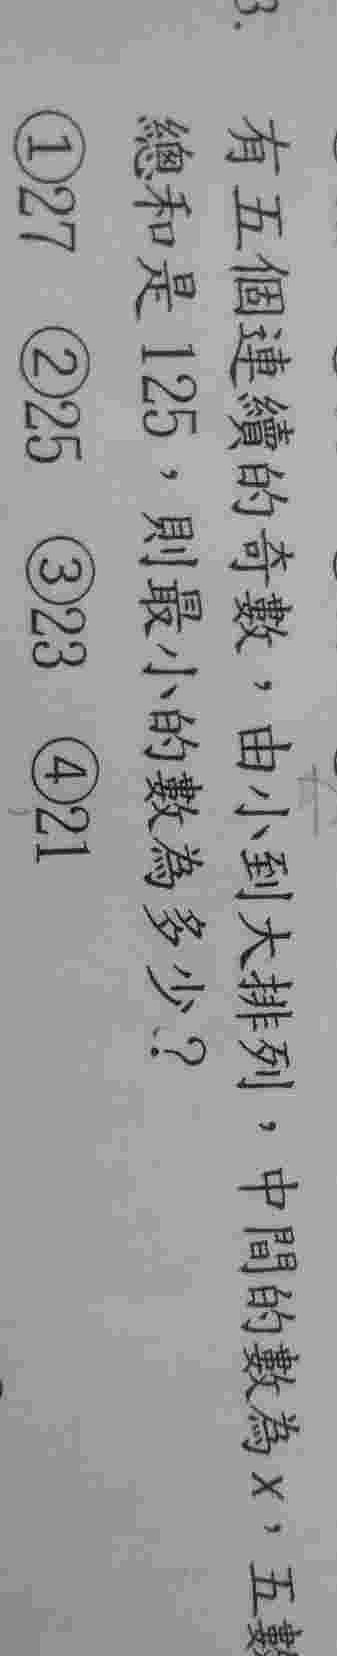 3. 有五個連續的奇數，由小到大排列，中間的數為x，五數
總和是125，則最小的數為多少？
①27 ②25 ③23 ④21